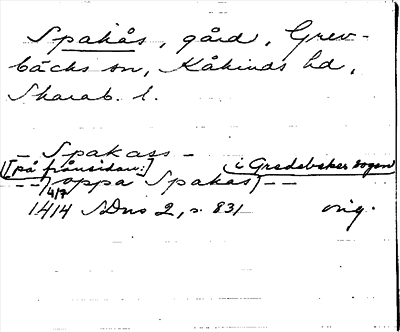 Spakås, gård, Grev-
bäcks sn, Kåkinds hd,
Skarab. l.
– Spakass –
[på frånsidan:] i Gredebeker sogen
– – oppa Spakas – –
4/7
1414 SDns 2, s. 831 orig.